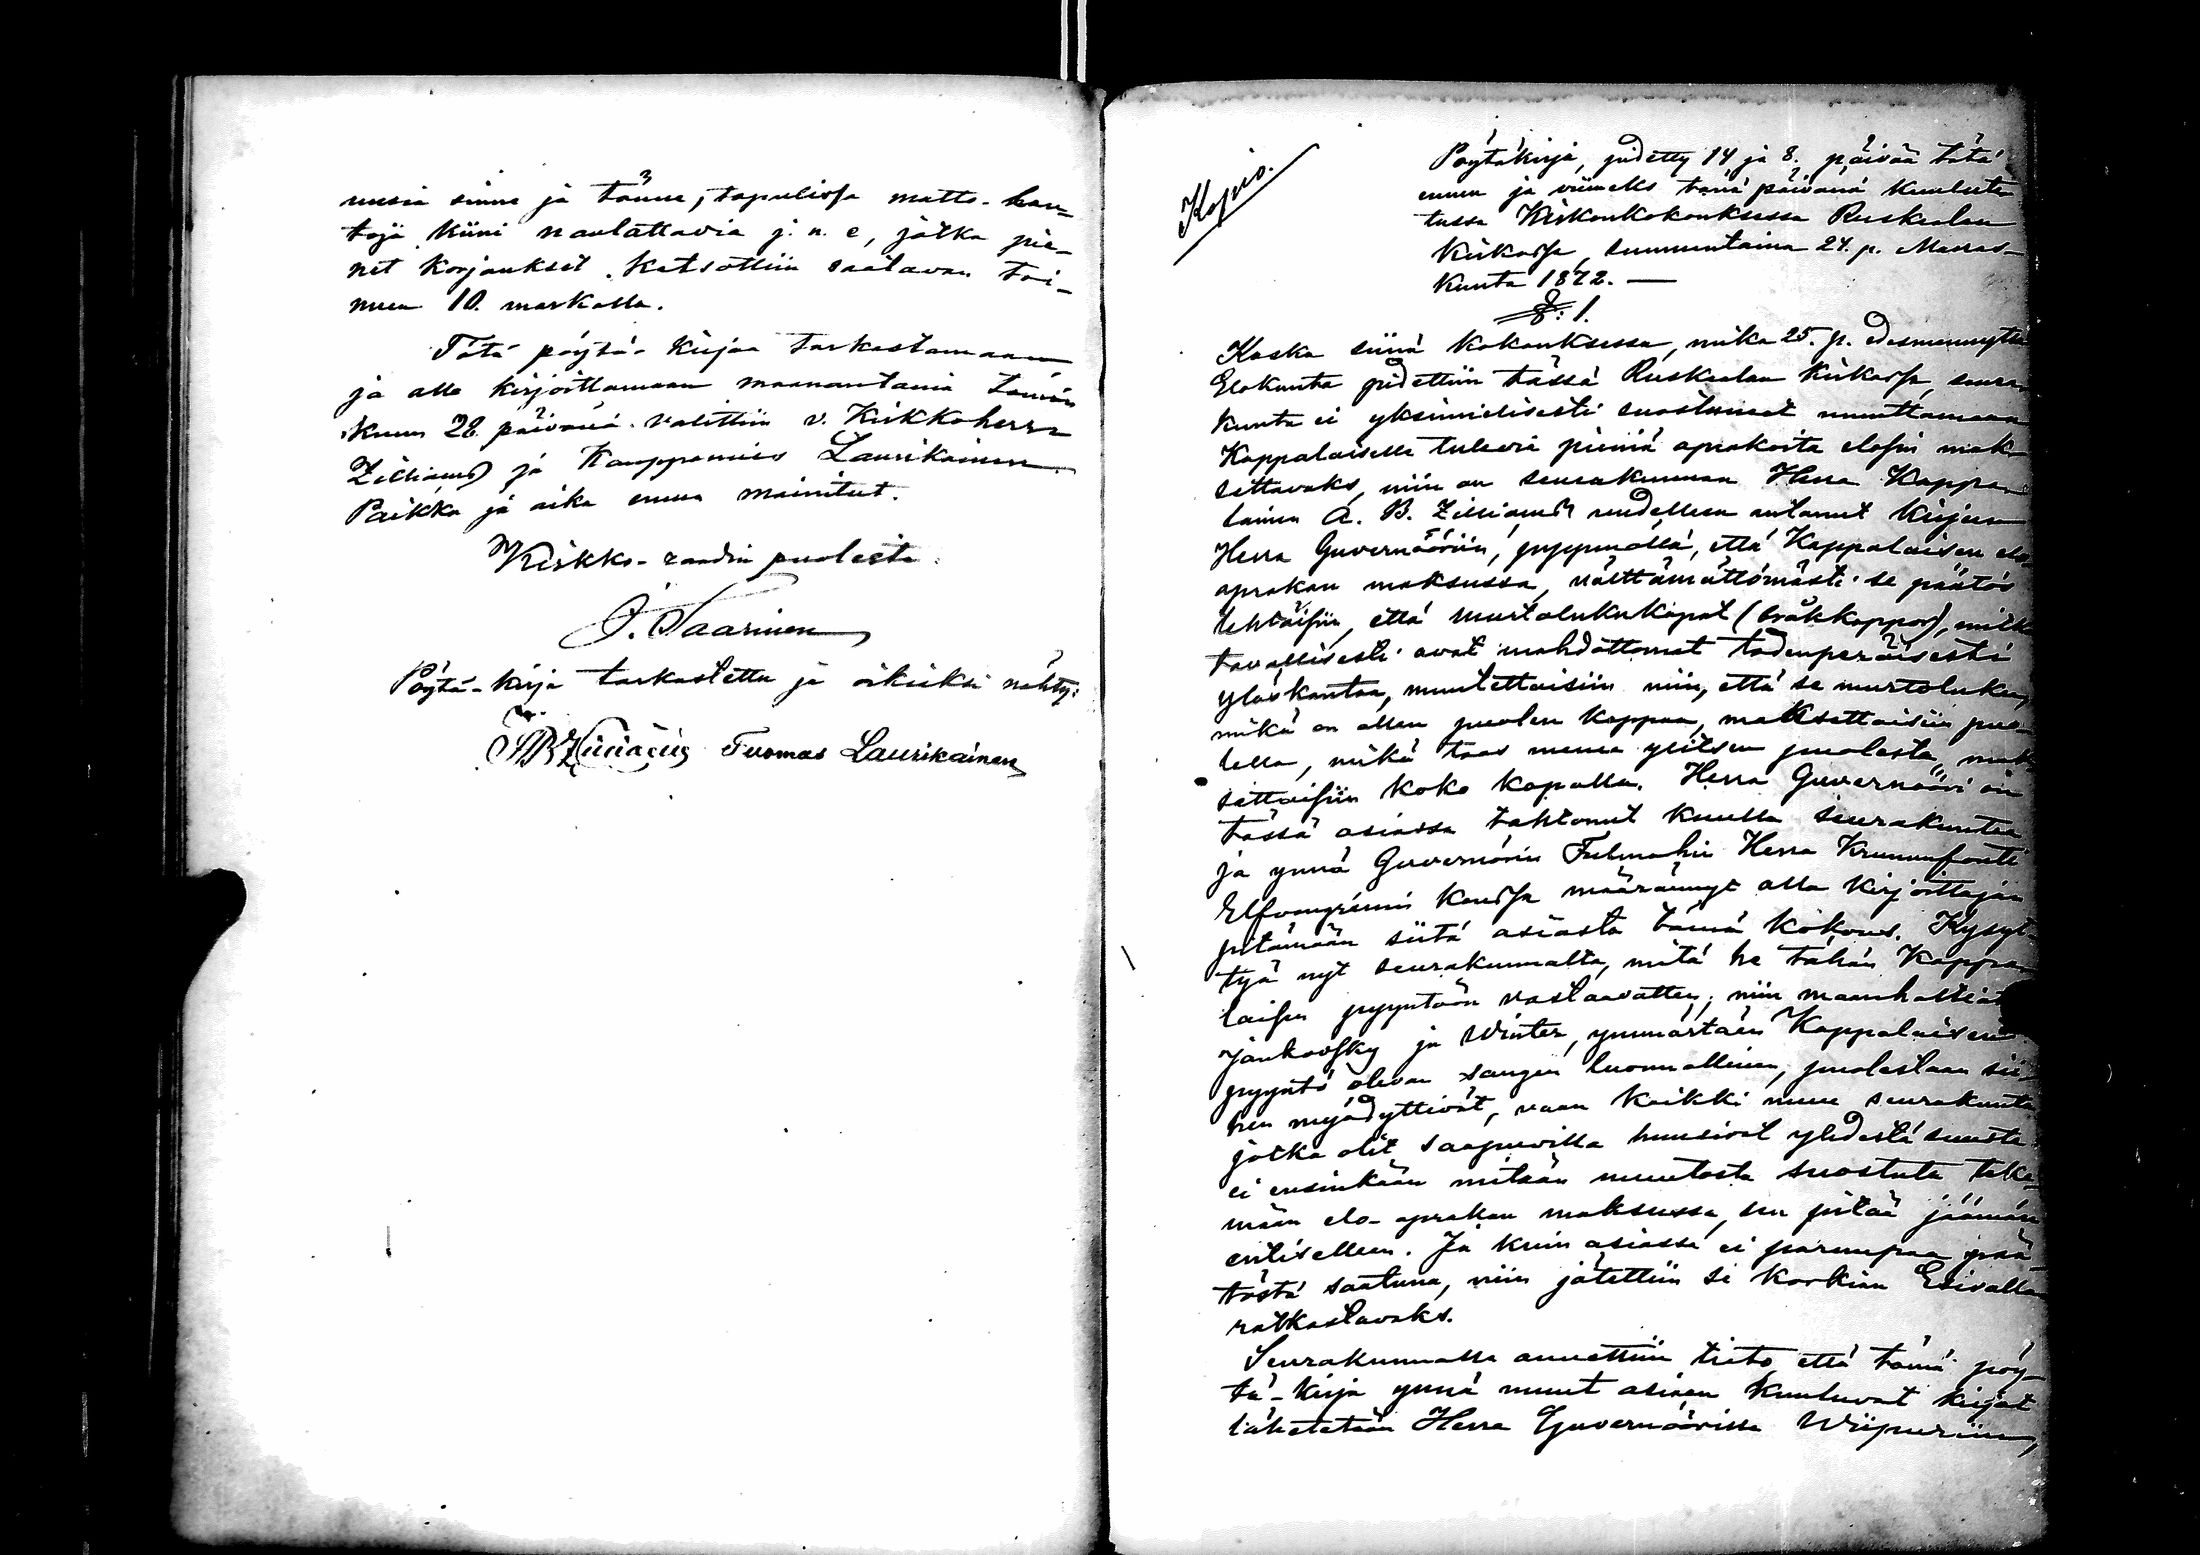 uusia sinne ja tänne, tapulissa matto-han-
toja kiini naulattavia j. n. e, jotka pie-
net korjaukset katsottiin saatavan toi-
meen 10. markalla.
Tätä pöytä-kirjaa tarkastamaan
ja alle kirjoittamaan maanantaina tämän
kuun 28. päivänä valittiin v. Kirkkoherra
Zilliacus ja Kauppamies Laurikainen.
Paikka ja aika ennen mainitut.
Kirkko-raadin puolesta:
J. Saarinen
Pöytä-kirja tarkastettu ja oikiiksi nähty:
A B Zilliacus Tuomas Laurikainen
Kopio.
Pöytäkirja, pidetty 14 ja 8. päivää tätä
ennen ja viimeks tänä päivänä kuulute-
tussa Kirkonkokouksessa Ruskealan
kirkossa, sunnuntaina 24. p. Marras-
kuuta 1872. —
§: 1.
Koska siinä kokouksessa, mikä 25. p. edesmennyttä
Elokuuta pidettiin tässä Ruskealan kirkossa, seura-
kunta ei yksimielisesti suostunut muuttamaan
Kappalaiselle tulevia pieniä aprakoita elossa mak-
settavaks, niin on seurakunnan Herra Kappa-
lainen A. B. Zilliacus uudelleen antanut kirjan
Herra Guvernööriin, pyynnöllä, että Kappalaisen elo-
aprakan maksussa, välttämättömästi se päätös
tehtäisiin, että murtolukukapat (bråkkappor), mitkä
tavallisesti ovat mahdottomat todenperäisesti
ylöskantaa, muutettaisiin niin, että se murtoluku,
mikä on allen puolen kappaa, maksettaisiin puo-
lella, mikä taas menee ylitsen puolesta, mak-
settaisiin koko kapalla. Herra Guvernööri on
tässä asiassa tahtonut kuulla seurakuntaa
ja ynnä Guvernörin Herra Kruununfouti
Elfvengrenin kautta määrännyt alle kirjoittajan
pitämään siitä asiasta tämä kokous. Kysyt-
tyä nyt seurakunnalta, mitä he tähän Kappa-
laisen pyyntöön vastaavatten; niin maanhaltiat
Jankovsky ja Winter, ymmärtäen Kappalaisen
pyyntö olevan sangen luonnollinen, puolestaan sii-
hen myödyttivät, vaan kaikki muu seurakunta
jotka olit saapuvilla huusivat yhdestä suusta
ei ensinkään mitään muutosta suostuta teke-
mään elo-aprakan maksussa, sen pitää jäämän
entiselleen. Ja kuin asiassa ei parempaa pää-
töstä saatuna, niin jätettiin se korkian Esivallan
ratkastavaks.
Seurakunnalle annettiin tieto että tämä pöy-
tä-kirja ynnä muut asiaan kuuluvat kirjat
lähetetään Herra Guvernöörille Wiipuriin,